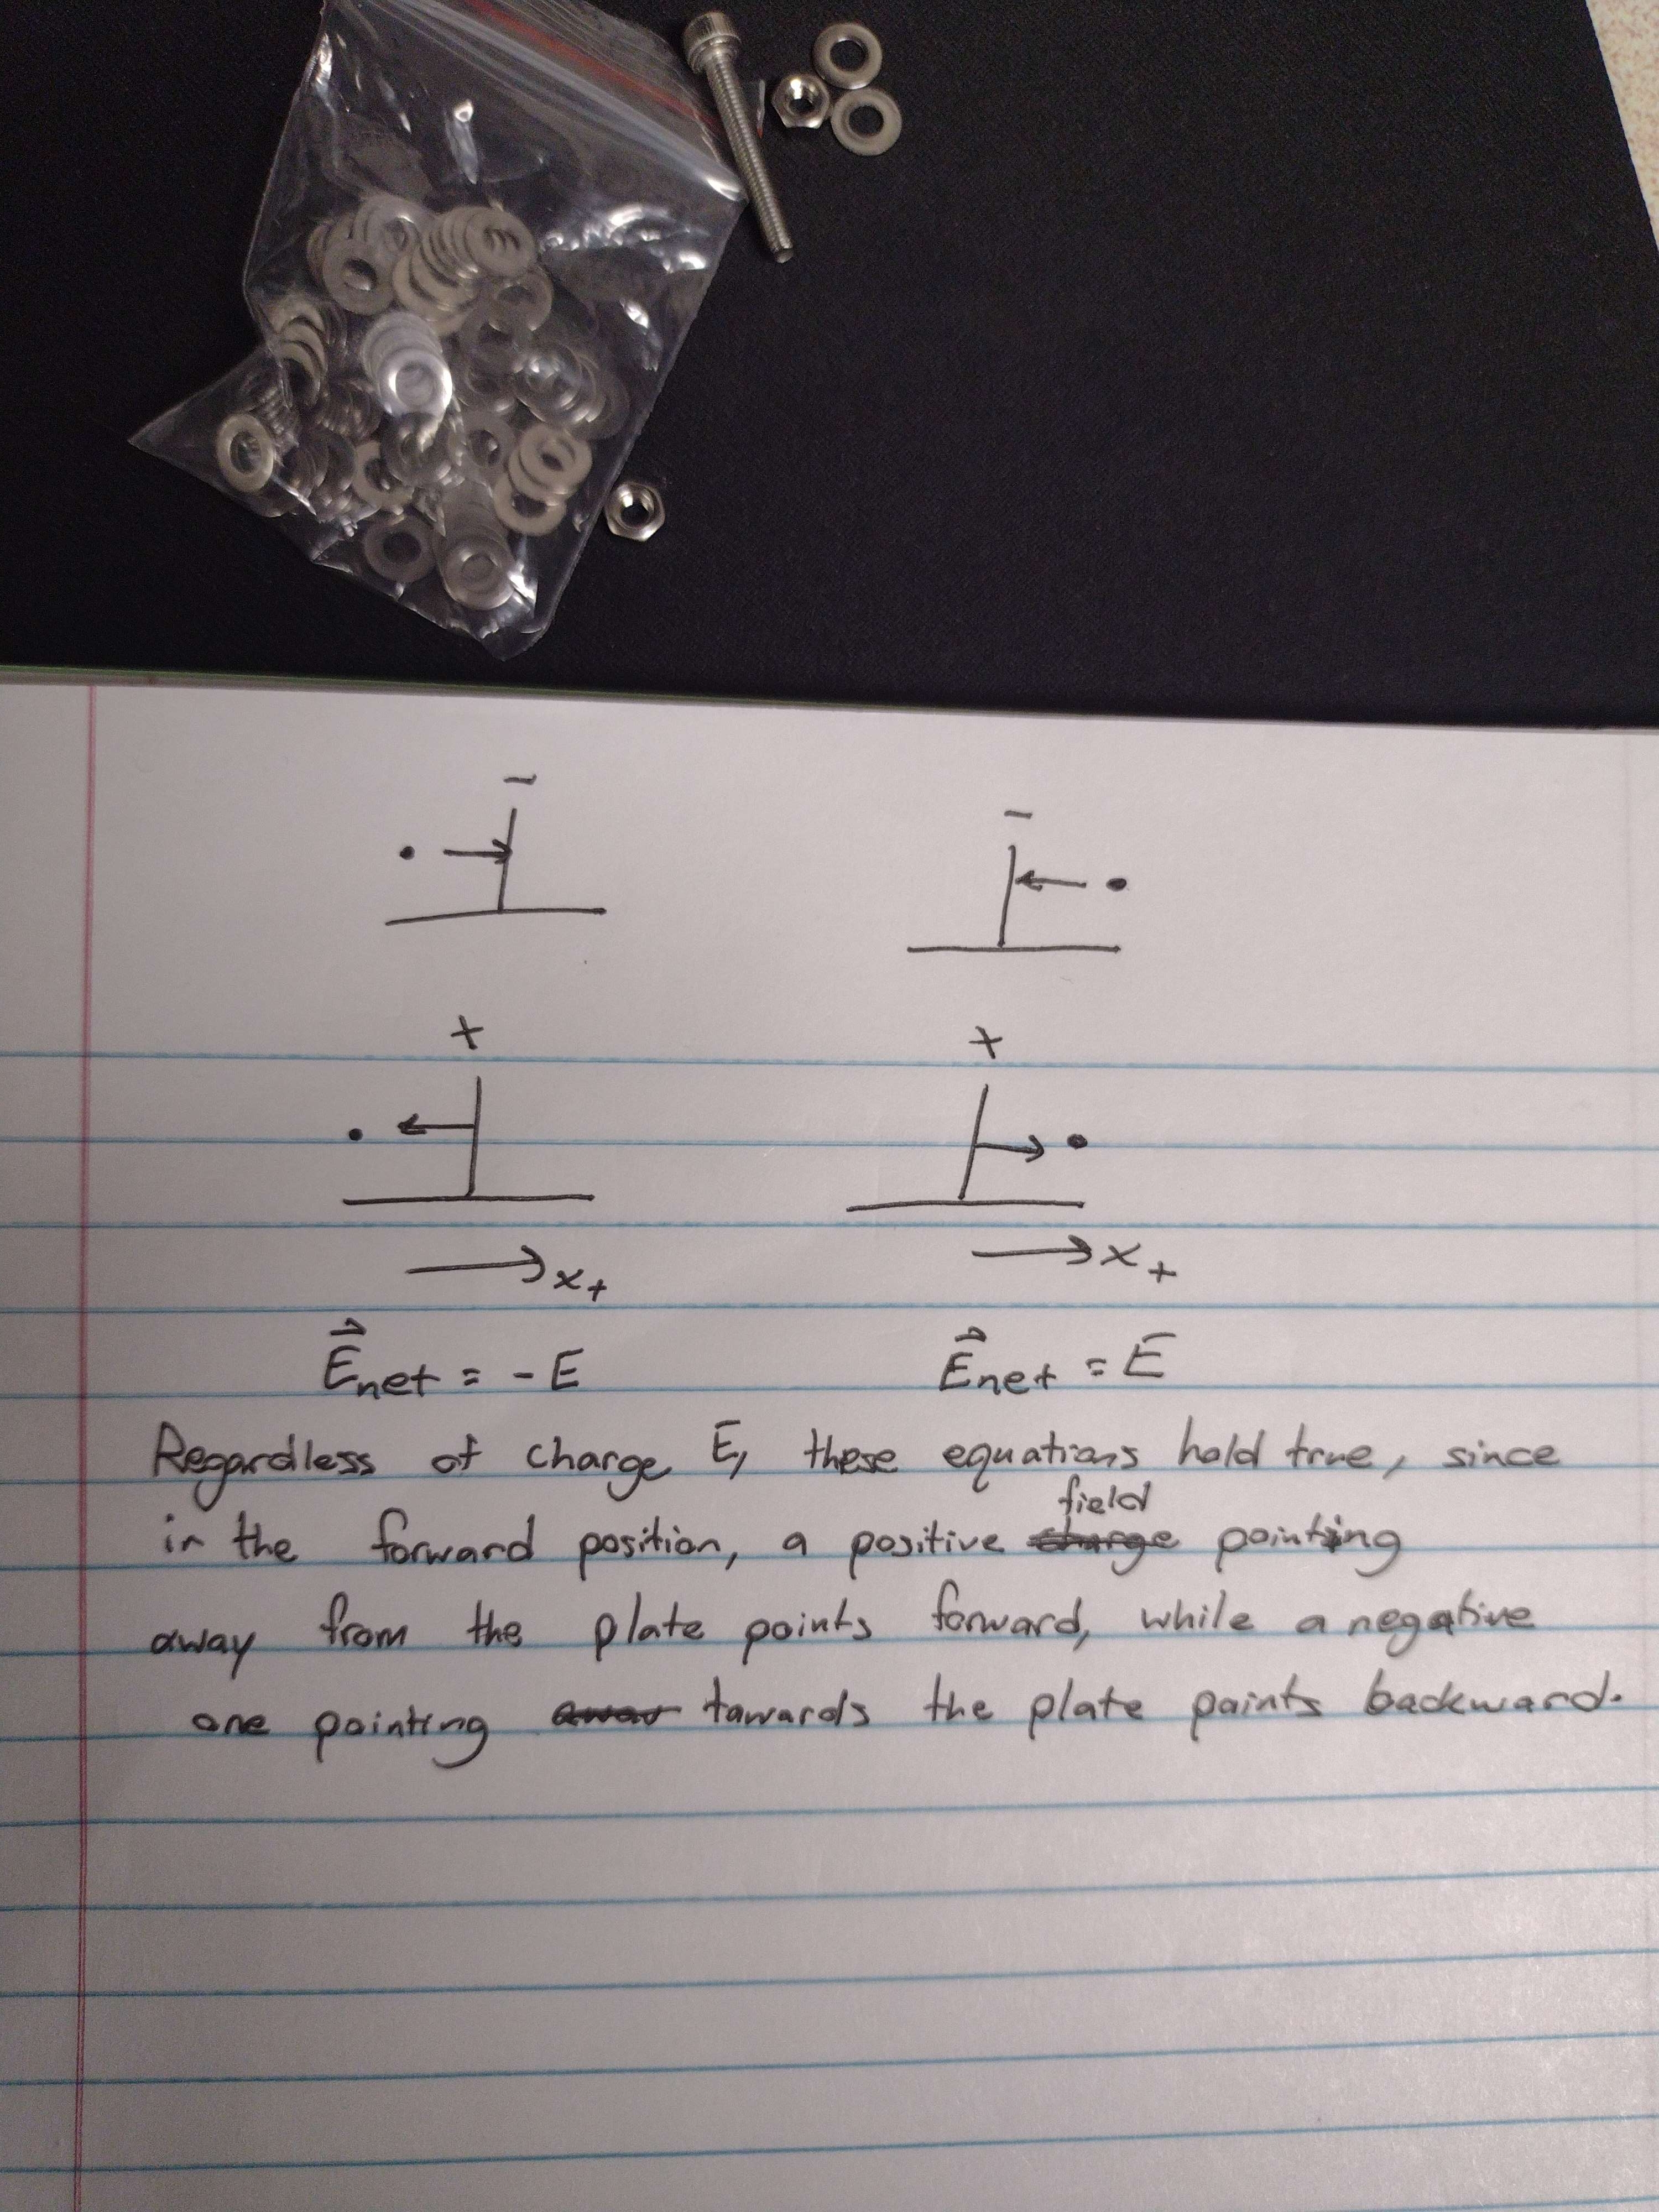 - -
+ +
x+ x+
E⃗net = -E E⃗net = E
Regardless of charge E, these equations hold true, since
in the forward position, a positive field pointing
away from the plate points forward, while a negative
one pointing towards the plate points backward.